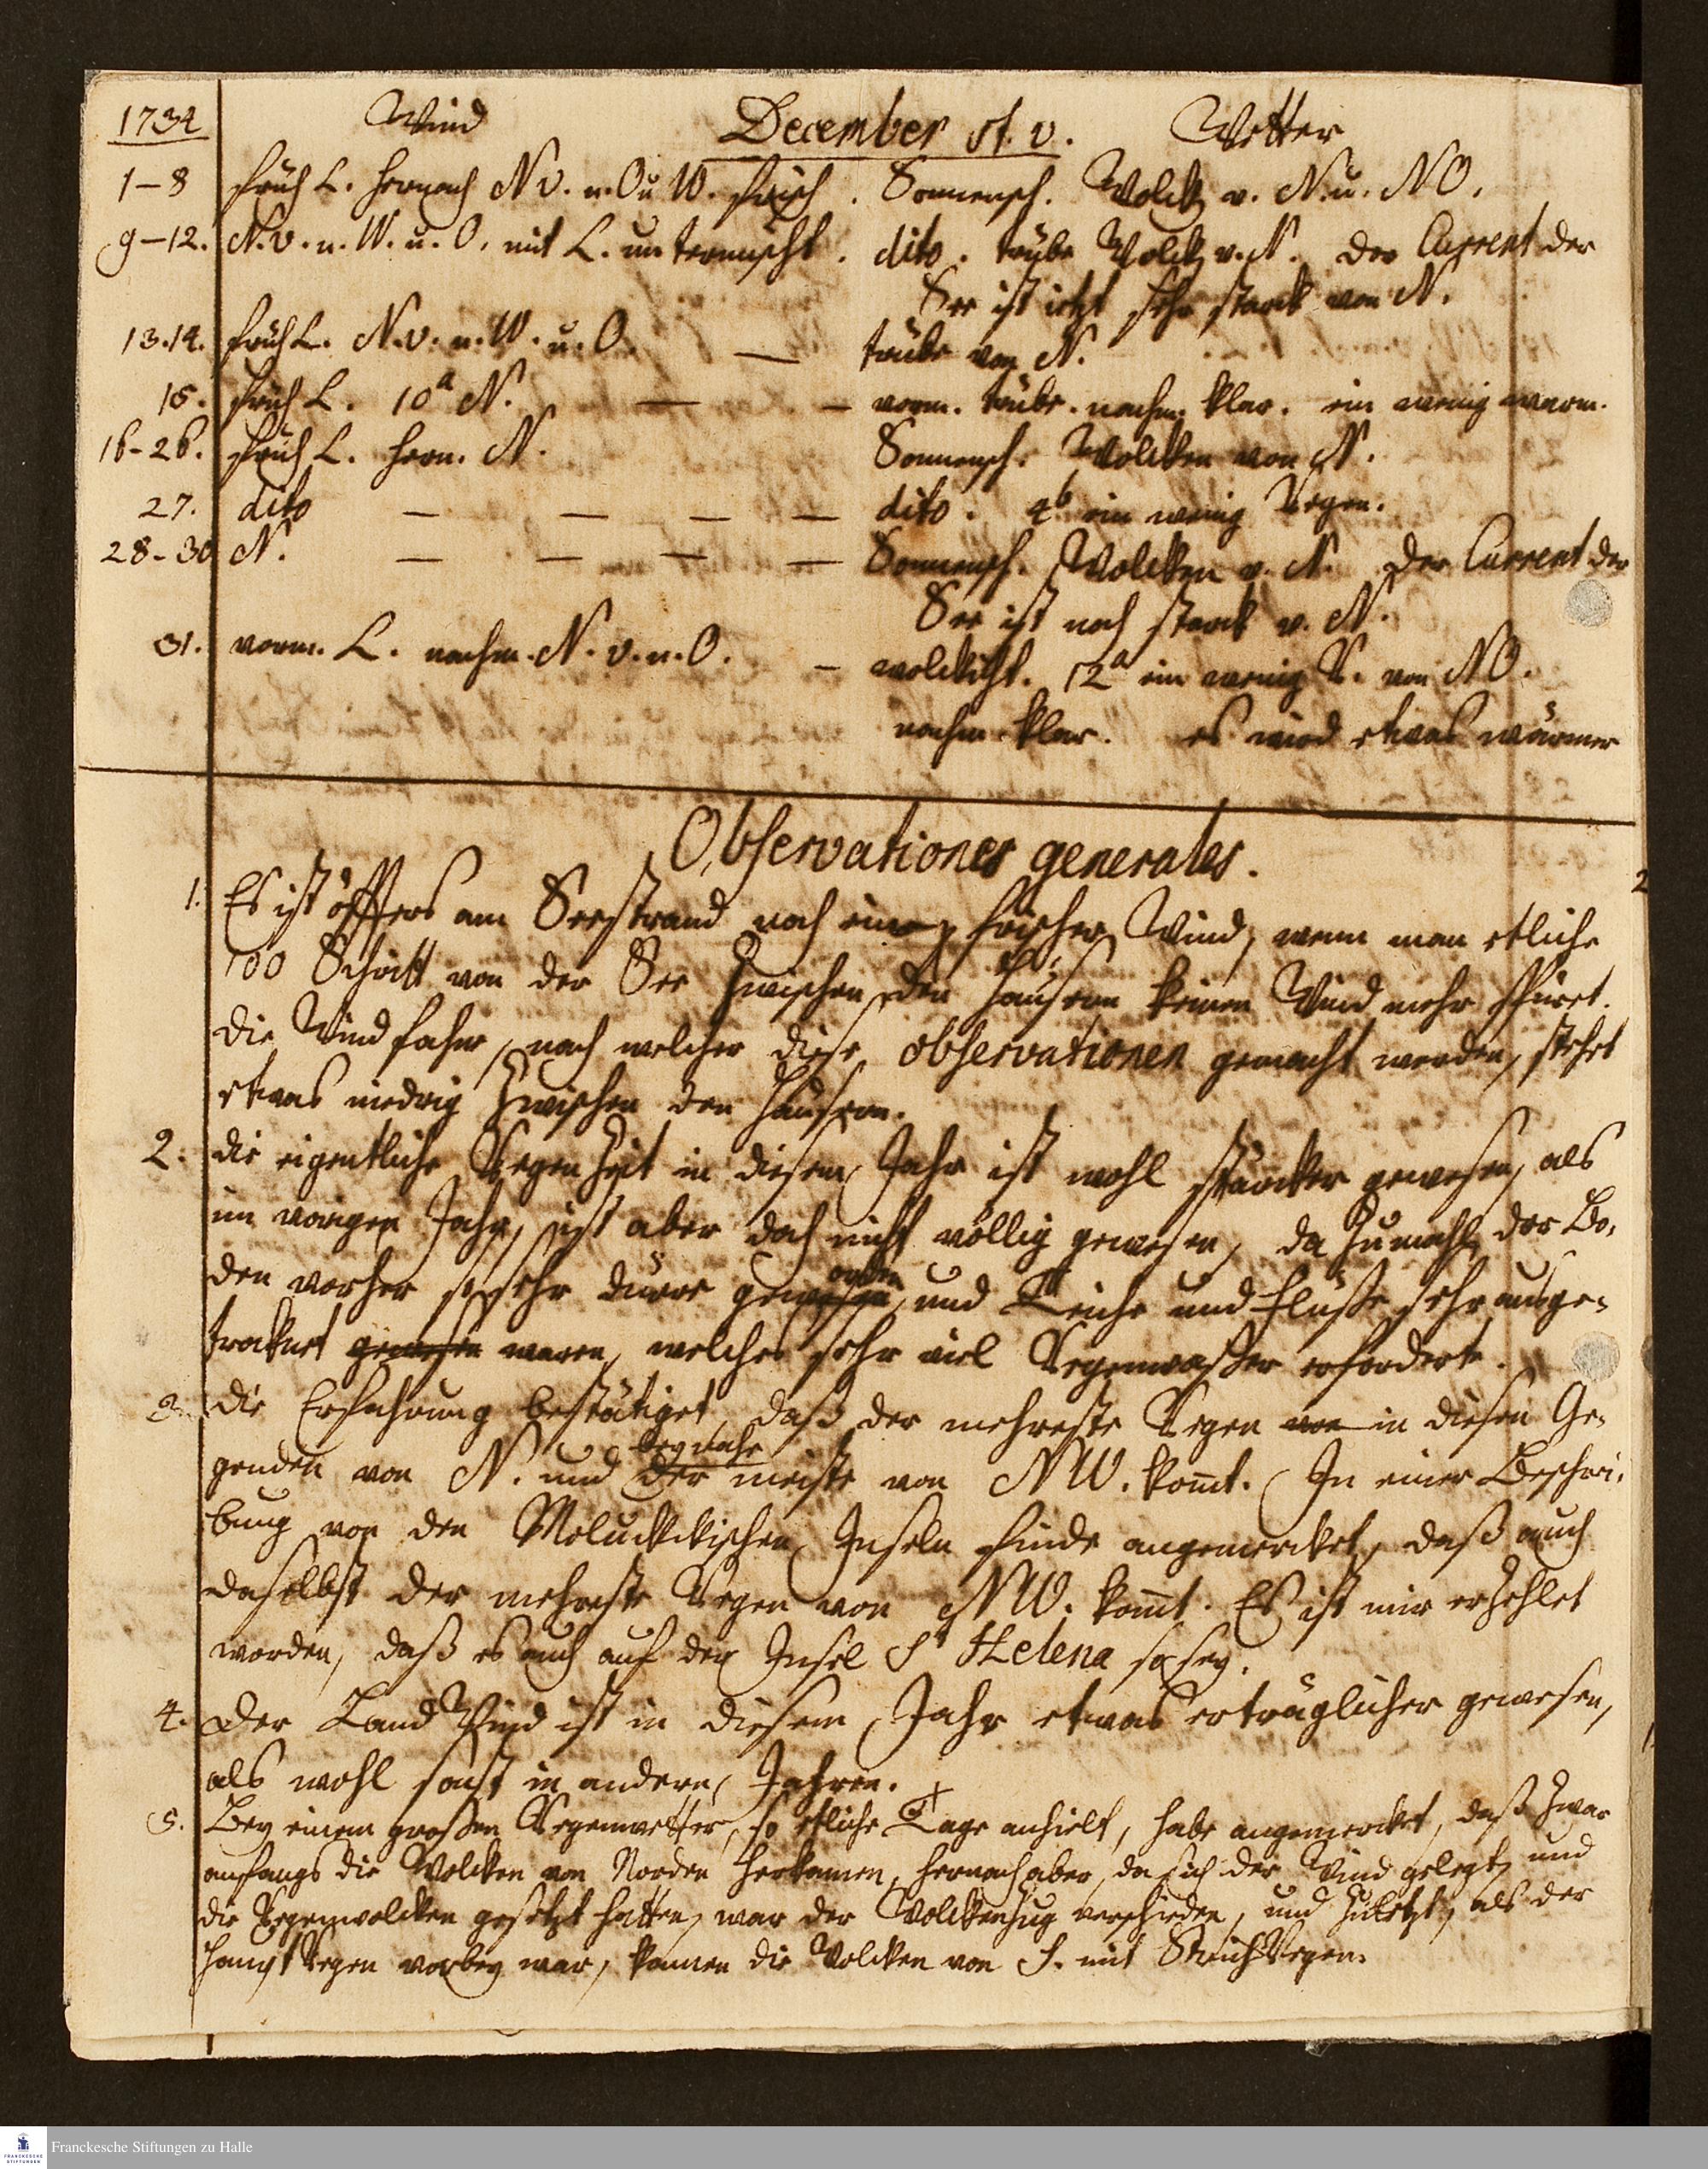 1734 Wind December st. v. Wetter
1-8 früh L. hernach N v. u. O u W. frisch. Sonnensch. Wolck. v. N. u. NO.
9-12. N. v. u. W. u. O. mit L. untermischt. dito. trübe Wolck. v. N. der Current der
See ist ietzt sehr starck von N.
13.14. früh L. N. v. u. W. u. O. — trübe von N.
15. früh L. 10a N. — — vorm. trübe. nachm. klar. ein wenig warm.
16-26. früh L. hern. N. Sonnensch. Wolcken von N.
27. dito — — — — dito. 4b ein wenig Regen.
28-30 N. — — — — Sonnensch. Wolcken v. N. der Current der
See ist noch starck v. N.
31. vorm. L. nachm. N. v. u. O. — wolckicht. 12a ein wenig R. von NO.
nachm. klar. es wird etwas wärmer
Observationes generales.
1. Es ist öffters am Seestrand noch einer frischer Wind, wenn man etliche
100 Schritt von der See zwischen den Häusern keinen Wind mehr spüret.
Die Windfahne, nach welcher diese observationen gemacht werden, stehet
etwas niedrig zwischen den Häusern.
2. die eigentliche Regenzeit in diesem Jahr ist wohl stärcker gewesen, als
im vorigen Jahr, ist aber doch nicht völlig gewesen, da zumahl der Bo-
den vorher so sehr dürre gewesen, und Teiche und Flüße sehr ausge-
trocknet gewesen waren, welches sehr viel Regenwaßer erforderte.
3. die Erfahrung bestätiget, daß der mehreste Regen von in diesen Ge-
genden von N. und beynahe
der meiste von NW. komt. In einer Beschrei-
bung von den Moluckischen Inseln finde angemercket, daß auch
daselbst der mehreste Regen von NW. komt. Es ist mir erzehlet
worden, daß es auch auf der Insel St Helena so sey.
4. Der Land Wind ist in diesem Jahr etwas erträglicher gewesen,
als wohl sonst in andern Jahren.
5. Bey einem großen Regenwetter, so etliche Tage anhielt, habe angemercket, daß zwar
anfangs die Wolcken von Norden herkamen, hernach aber, da sich der Wind gelegt, und
die Regenwolcken gesetzt hatten, war der Wolckenzug verschieden, und zuletzt, als der
Haupt Regen vorbey war, kamen die Wolcken von S. mit Strich Regen.
Franckesche Stiftungen zu Halle